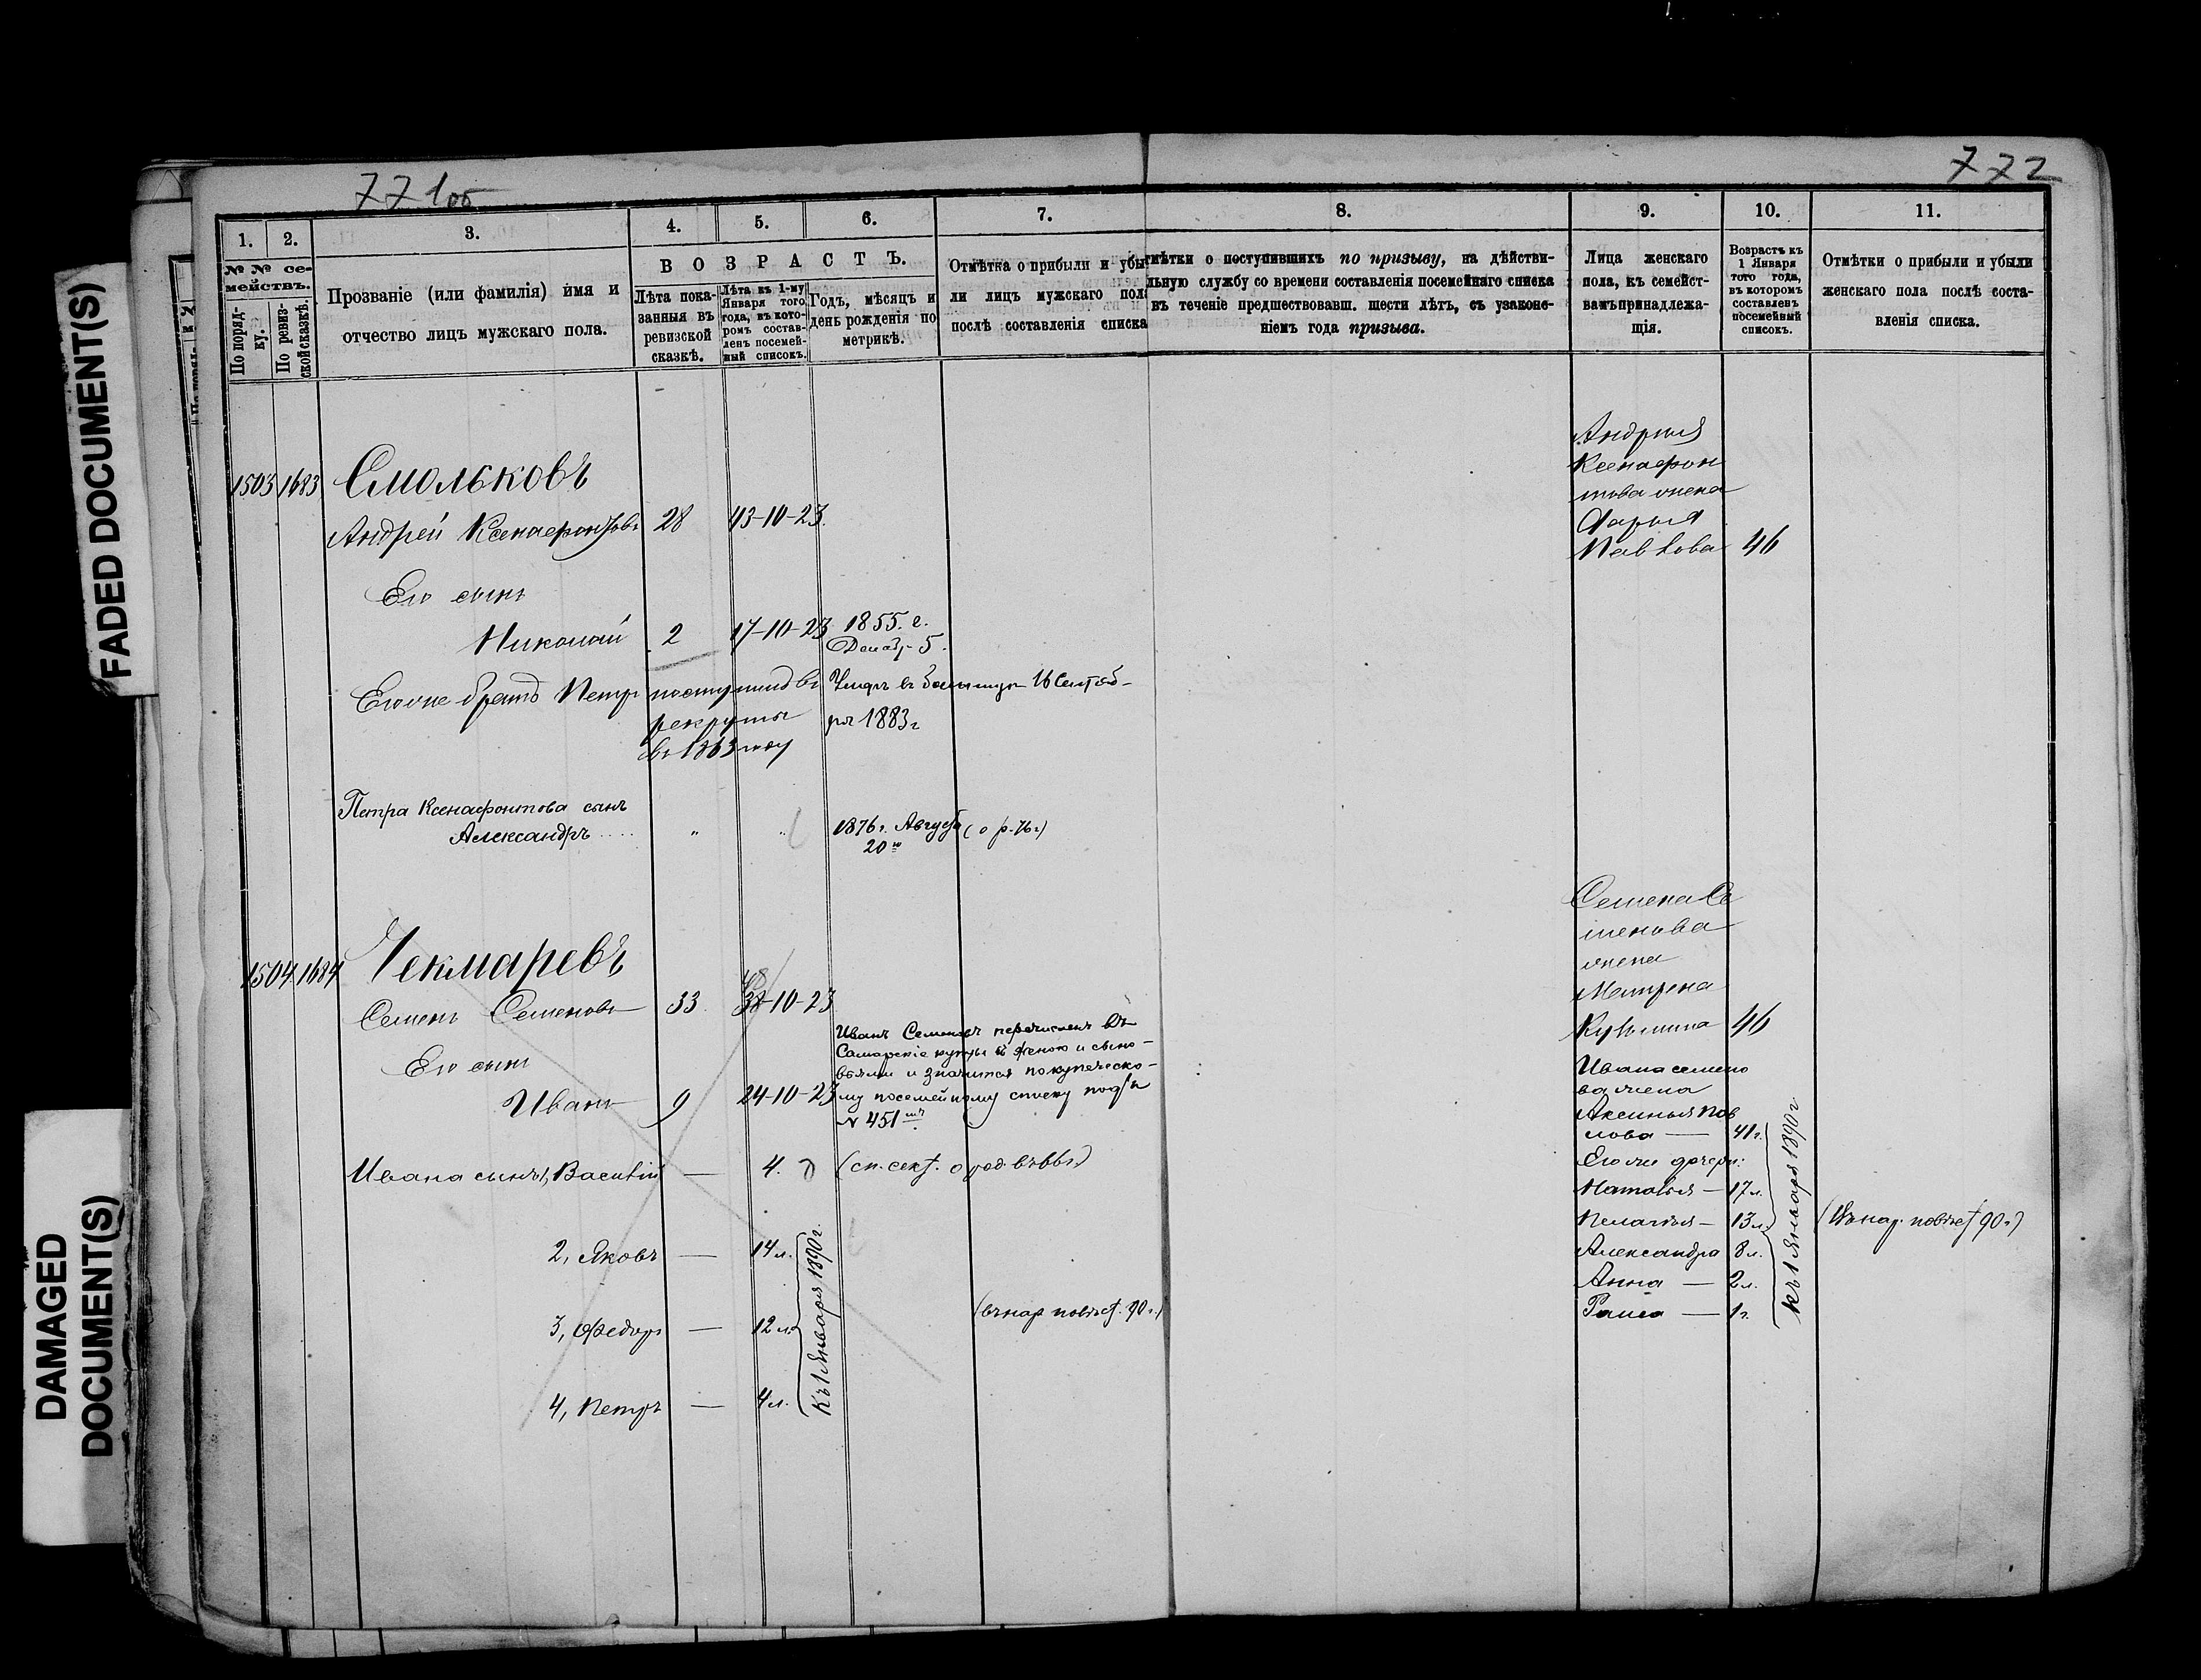 FADED DOCUMENT(S)
DAMAGED
DOCUMENT(S)
771об
772
1.
2.
3.
4.
5.
6.
7.
8.
9.
10.
11.
№ № се-
мействъ.
По поряд-
ку.
По ревиз-
ской сказкѣ.
Прозваніе (или фамилія) имя и
отчество лицъ мужскаго пола.
В О З Р А С Т Ъ.
Лѣта пока-
занныя въ
ревизской
сказкѣ.
Лѣта къ 1-му
Января того
года, въ кото-
ромъ состав-
ленъ посемей-
ный списокъ.
Годъ, мѣсяцъ и
день рожденія по
метрикѣ.
Отмѣтка о прибыли и убы
ли лицъ мужскаго пола
послѣ составленія списка
мѣтки о поступившихъ по призыву, на дѣйстви-
льную службу со времени составленія посемейнаго списка
въ теченіе предшествовавш. шести лѣтъ, съ узаконе-
ніемъ года призыва.
Лица женскаго
пола, къ семейст-
вамъ принадлежа-
щія.
Возрастъ къ
1 Января
того года,
въ которомъ
составленъ
посемейный
списокъ.
Отмѣтки о прибыли и убыли
женскаго пола послѣ соста-
вленія списка.
1503 1683 Смольковъ
Андрей Ксенафонтовъ 28 43-10-23.
Его сынъ
Николай 2 17-10-23 1855. г.
Декабр 5.
Его же братъ Петръ поступилъ въ
рекруты
въ 1863 году
16 Сентяб-
ря 1883 г
Петра Ксенафонтова сынъ
Александръ " " 1876 г. Августа (о р. 76 г)
20го
Андрея
Ксенафон
това жена
Дарья
Павлова 46
1504 1684 Чекмаревъ
Семенъ Семеновъ 33. 48
38-10-23
Его сынъ
Иванъ 9 24-10-23
Иванъ Семеновъ перечисленъ въ
Самарскіе купцы съ женою и сыно-
вьями и значится по купеческо-
му посемейному списку подъ
№ 451мъ
Ивана сынъ 1, Василій — 4. (сп. сент. о род.
2, Яковъ — 14 л.
3, Федоръ — 12 л. (въ нар. 90 г.)
4, Петръ — 4 л.
Къ 1 Января 1890 г.
Семена Се
менова
жена
Матрена
Кузьмина 46
Ивана семено
ва жена
Аксинья Пав
лова — 41 г.
Его же дочери:
Наталья — 17 л.
Пелагея — 13 л. (Въ нар. 90 г)
Александра 8 л.
Анна — 2 л.
Раиса — 1 г.
къ 1 Января 1890 г